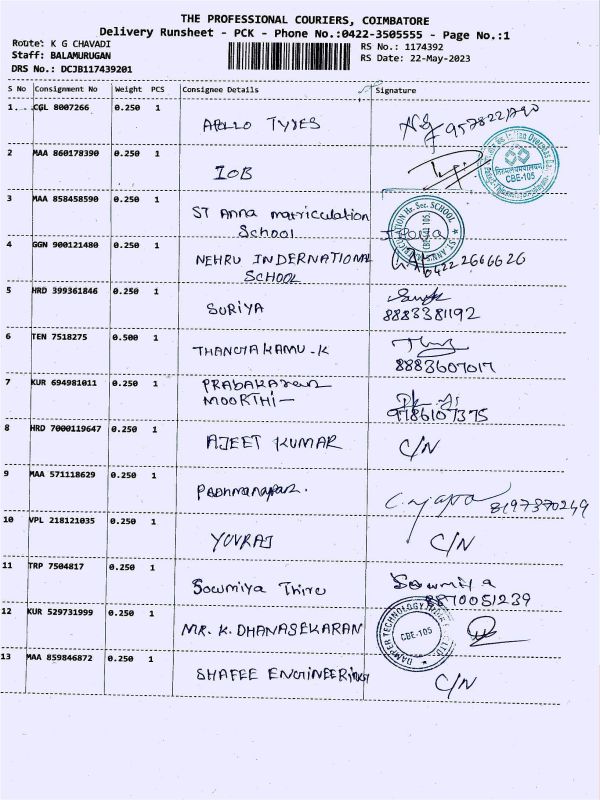 THE PROFESSIONAL COURIERS, COIMBATORE
Delivery Runsheet - PCK - Phone No.:0422-3505555 - Page No.:1
Route: K G CHAVADI
Staff: BALAMURUGAN
DRS No.: DCJB117439201
RS No.: 1174392
RS Date: 22-May-2023
S No Consignment No Weight PCS Consignee Details Signature
1 CGL 8007266 0.250 1 APOLLO TYRES
2 MAA 860178390 0.250 1 IOB
CBE-105
3 MAA 858458590 0.250 1 ST Anna matriculation
School
CBE 105
4 GGN 900121480 0.250 1 NEHRU INDERNATIONAL
SCHOOL
04222666626
5 HRD 399361846 0.250 1 SURIYA
8883381192
6 TEN 7518275 0.500 1 THANGTAKAMU-K
8883607017
7 KUR 694981011 0.250 1 PRABAKARAN
MOORTHI
9786107375
8 HRD 7000119647 0.250 1 AJEET KUMAR C/N
9 MAA 571118629 0.250 1 Padhmanapan.
8197370249
10 VPL 218121035 0.250 1 YUVRAJ C/N
11 TRP 7504817 0.250 1 Sowmiya Thiru Sowmiya
8870051239
12 KUR 529731999 0.250 1 MR. K. DHANASEKARAN
CBE-105
13 MAA 859846872 0.250 1 SHAFEE ENGINEERING C/N